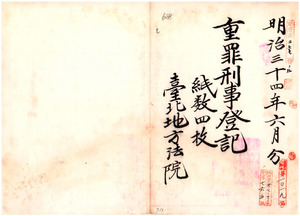 明治三十四年六月分
重罪刑事登記
紙数四枚
臺北地方法院